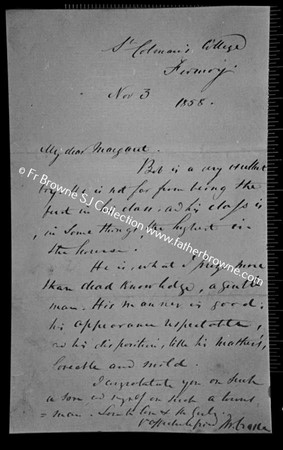 St Colman's College
Fermoy
Nov 3
1858.
My dear Margaret.
Bob is a very excellent
boy. He is not far from being the
first in his class. and his class is
, in some things, the highest in
the house.
He is, what I prize more
than dead knowledge, a gentle
man. His manner is good:
his appearance respectable,
and his disposition, like his mother's,
loveable and mild.
I congratulate you on such
a son and myself on such a
= man.
© Fr Browne SJ Collection www.fatherbrowne.com